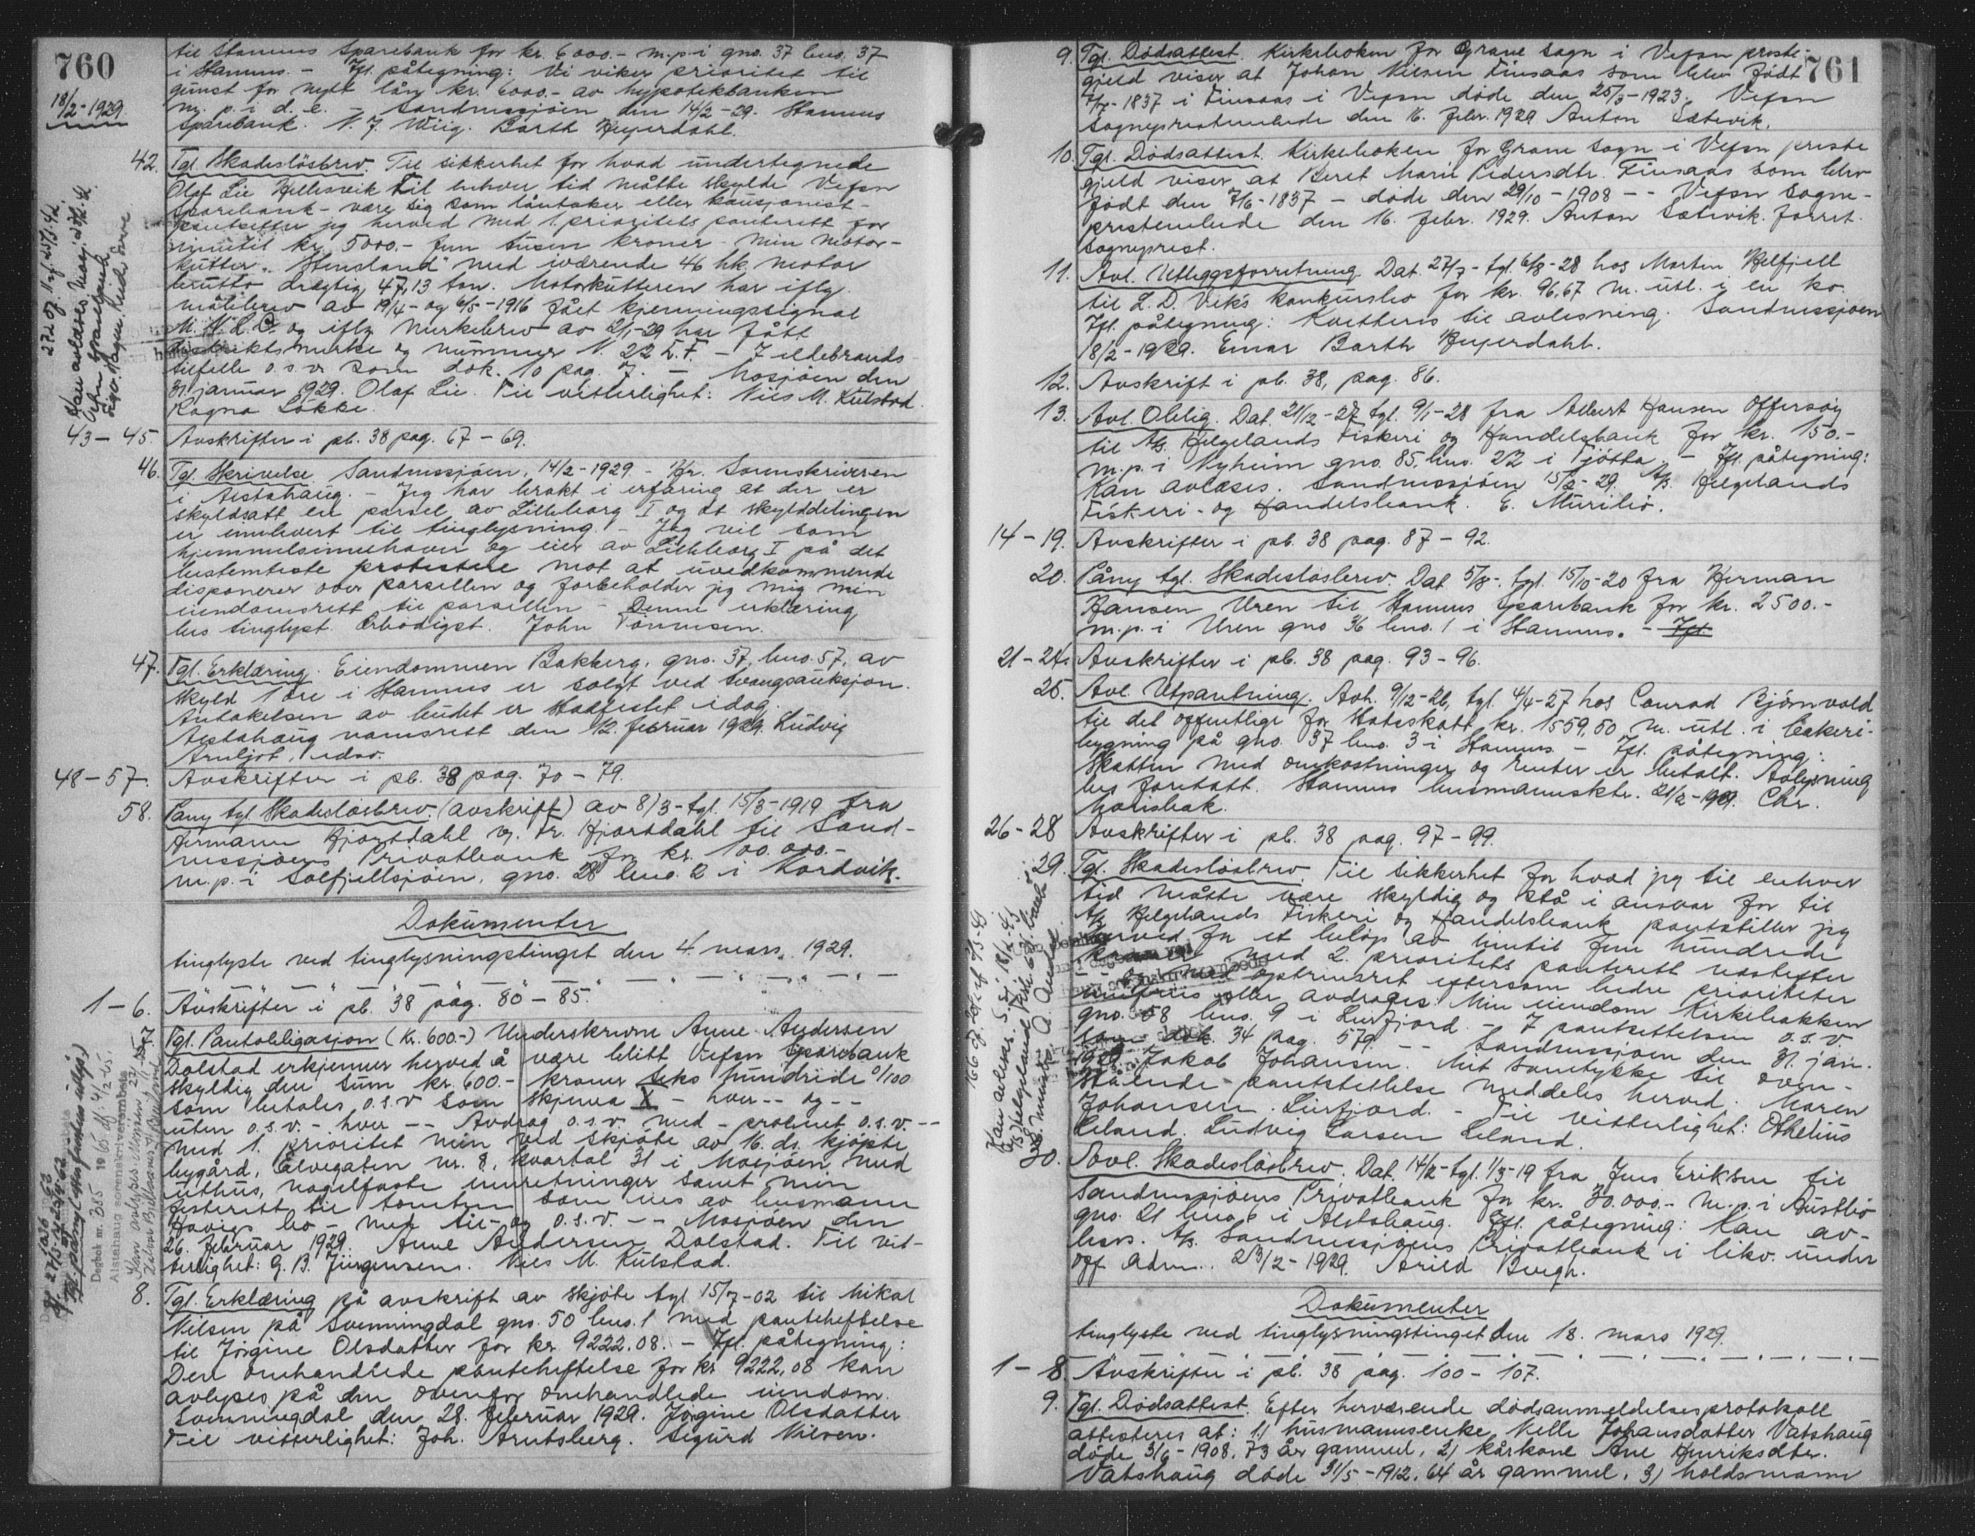 760
18/2-1929
til Stamnes Sparebank for kr. 6000.- m.p. i gno. 37 bno. 37
i Stamnes. - Ift. påtegning: Vi viker prioritet til
gunst for nytt lån kr. 6000.- av hypotekbanken
m. p. i d. e. - Sandnessjøen den 14/2-29. Stamnes
Sparebank. N. J. Wiig. Barth Heyerdahl.
42. Tgl. Skadesløsbrev. Til sikkerhet for hvad undertegnede
Olaf Lie Hellesvik til enhver tid måtte skylde Vefsn
Sparebank - være sig som låntaker eller kausjonist -
pantsetter jeg herved med 1. prioritets panterett for
inntil kr. 5000.- fem tusen kroner - min motor-
kutter "Stensland" med iværende 46 hk. motor
brutto drægtig 47,13 ton. Motorkutteren har iflg.
målebrev av 19/4- og 6/5-1916 fået kjenningssignal
M. W. L. C. og iflg. merkebrev av 2/1-29 har fått
distriktsmerke og nummer N. 22 L.F. - I ildebrands-
tilfelle o.s.v. som dok. 10 pag. 7. - Mosjøen den
31. januar 1929. Olaf Lie. Til vitterlighet: Nils M. Kulstad.
Ragna Løkke.
43-45. Avskrifter i pb. 38 pag. 67-69.
46. Tgl. Skrivelse. Sandnessjøen, 14/2-1929 - Hr. Sorenskriveren
i Alstahaug. - Jeg har brakt i erfaring at der er
skyldsatt en parsel av Lilleborg I og at skylddelingen
er innlevert til tinglysning. - Jeg vil som
hjemmelsinnehaver og eier av Lilleborg I på det
bestemteste protestere mot at uvedkommende
disponerer over parsellen og forbeholder jeg mig min
eiendomsrett til parsellen - Denne erklæring
bes tinglyst. Ærbødigst. John Tønnesen.
47. Tgl. Erklæring. Eiendommen Bakberg, gno. 37, bno. 57, av
skyld 1 øre i Stamnes er solgt ved tvangsauksjon.
Antakelsen av budet er stadfestet idag.
Alstahaug namsrett den 12. februar 1929. Ludvig
Arnljot,
48-57. Avskrifter i pb. 38 pag. 70-79.
58. Påny tgl. Skadesløsbrev. (avskrift) av 8/3- tgl. 15/3-1919 fra
Hermann Hjortdahl og Fr. Hjortdahl til Sand-
nessjøens Privatbank for kr. 100.000.-
m.p. i Solfjellsjøen, gno. 28 bno. 2 i Nordvik.
Dokumenter
tinglyste ved tinglysningstinget den 4. mars 1929.
1-6. Avskrifter i pb. 38 pag. 80-85.
7. Tgl. Pantobligasjon (kr. 600.-) Underskrevne Anne Andersen
Dolstad erkjenner herved å være blitt Vefsn Sparebank
skyldig den sum kr. 600.- kroner seks hundrede 0/100
som betales o.s.v. som skjema X - hver -- og --
uten o.s.v. - hver -- Avdrag o.s.v. med - prosent o.s.v. --
med 1. prioritet min ved skjøte av 16. ds. kjøpte
bygård, Elvegaten nr. 8, kvartal 31 i Mosjøen, med
uthus, nagelfaste innretninger samt min
festerett til tomten som eies av husmann
Havigs bo - med til- og o.s.v. -- Mosjøen den
26. februar 1929. Anne Andersen Dolstad. Til vit-
terlighet: G. B. Jürgensen. Nils M. Kulstad.
8. Tgl. Erklæring på avskrift av skjøte tgl 15/7-02 til Mikal
Nilsen på Svenningdal gno. 50 bno. 1 med panteheftelse
til Jørgine Olsdatter for kr. 9222,08. - Ift. påtegning:
Den omhandlede panteheftelse for kr. 9222,08 kan
avlyses på den ovenfor omhandlede eiendom.
Svenningdal den 28. februar 1929. Jørgine Olsdatter
Til vitterlighet: Joh. Arntsberg. Sigurd Nilsen.
761
9. Tgl. Dødsattest. Kirkeboken for Grane sogn i Vefsn preste-
gjeld viser at Johan Nilsen Finsaas som blev født
1837 i Finsaas i Vefsn døde den 25/3-1923. Vefsn
Sogneprestembede den 16. febr. 1929 Anton Sætevik.
10. Tgl. Dødsattest. Kirkeboken for Grane sogn i Vefsn preste
gjeld viser at Beret Marie Pedersdtr. Finsaas som blev
født den 7/6-1837 - døde den 29/10-1908 -- Vefsn Sogne-
prestembede den 16. febr. 1929. Anton Sætevik. forret.
sogneprest.
11. Avl. Utleggsforretning. Dat. 27/7- tgl. 6/8-28 hos Morten Kelfjell
til L. D. Viks konkursbo for kr. 96,67 m. utl. i en ko.
Ift. påtegning: Kvitteres til avlesning. Sandnessjøen
18/2-1929. Einar Barth Heyerdahl.
12. Avskrift i pb. 38, pag. 86.
13. Avl. Oblig. Dat. 21/12-27 tgl. 9/1-28 fra Albert Hansen Offersøy
til A/S Helgelands Fiskeri og Handelsbank for kr. 150.-
m.p. i Nyheim gno. 85, bno. 22 i Tjøtta. - Ift. påtegning:
Kan avlæses. Sandnessjøen 15/2-29. A/S Helgelands
Fiskeri- og Handelsbank. E. Mürilio.
14-19. Avskrifter i pb. 38 pag. 87-92.
20. Påny tgl. Skadesløsbrev. Dat 5/8-, tgl. 15/10-20 fra Herman
Hansen Uren til Stamnes Sparebank for kr. 2500.-
m.p. i Uren gno 36 bno. 1 i Stamnes. - Ift.
21-24. Avskrifter i pb. 38 pag. 93-96.
25. Avl. Utpantning. Avh. 9/12-26, tgl. 4/1-27 hos Conrad Bjørnvold
til det offentlige for statsskatt kr. 1559,50 m. utl. i bakeri-
bygning på gno. 37 bno. 3 i Stamnes - Ift. påtegning:
Skatten med omkostninger og renter er betalt. Avlysning
bes foretatt. Stamnes lensmannsktr. 21/2-1929. Chr.
26-28 Avskrifter i pb. 38 pag. 97-99.
29. Tgl. Skadesløsbrev. Til sikkerhet for hvad jeg til enhver
tid måtte være skyldig og stå i ansvar for til
A/S Helgelands Fiskeri og Handelsbank pantstiller jeg
herved for et beløp av inntil fem hundrede
kroner med 2. prioritets panterett næstefter
med optrinsrett eftersom bedre prioriteter
innfries eller avdrages min eiendom Kirkebakken
gno. 58 bno. 9 i Leirfjord. - I pantsettelsen o.s.v.
som dok. 34 pag. 579 -- Sandnessjøen den 31. jan.
1929. Jakob Johansen. Mit samtykke til oven-
stående pantstillelse meddeles herved. Maren
Johansen. Leirfjord. - Til vitterlighet: Othelius
Leland. Ludvig Larsen Leland.
30. Avl. Skadesløsbrev. Dat. 14/2- tgl. 1/3-19 fra Jens Eriksen til
Sandnessjøens Privatbank for kr. 30.000.- m.p. i Austbø
gno. 21 bno. 6 i Alstahaug. Ift. påtegning: Kan av-
leses. A/S Sandnessjøens Privatbank i likv. under
off. adm. 23/2-1929. Arild Bergh.
Dokumenter
tinglyste ved tinglysningstinget den 18. mars 1929.
1-8. Avskrifter i pb. 38 pag. 100-107.
9. Tgl. Dødsattest. Efter herværende dødsanmeldelsesprotokoll
attesteres at: 1) husmannsenke Nelle Johansdatter Vatshaug
døde 3/6-1908, 73 år gammel, 2) kårkone Ane Henriksdtr.
Vatshaug døde 31/5-1912, 64 år gammel, 3) holdsmann